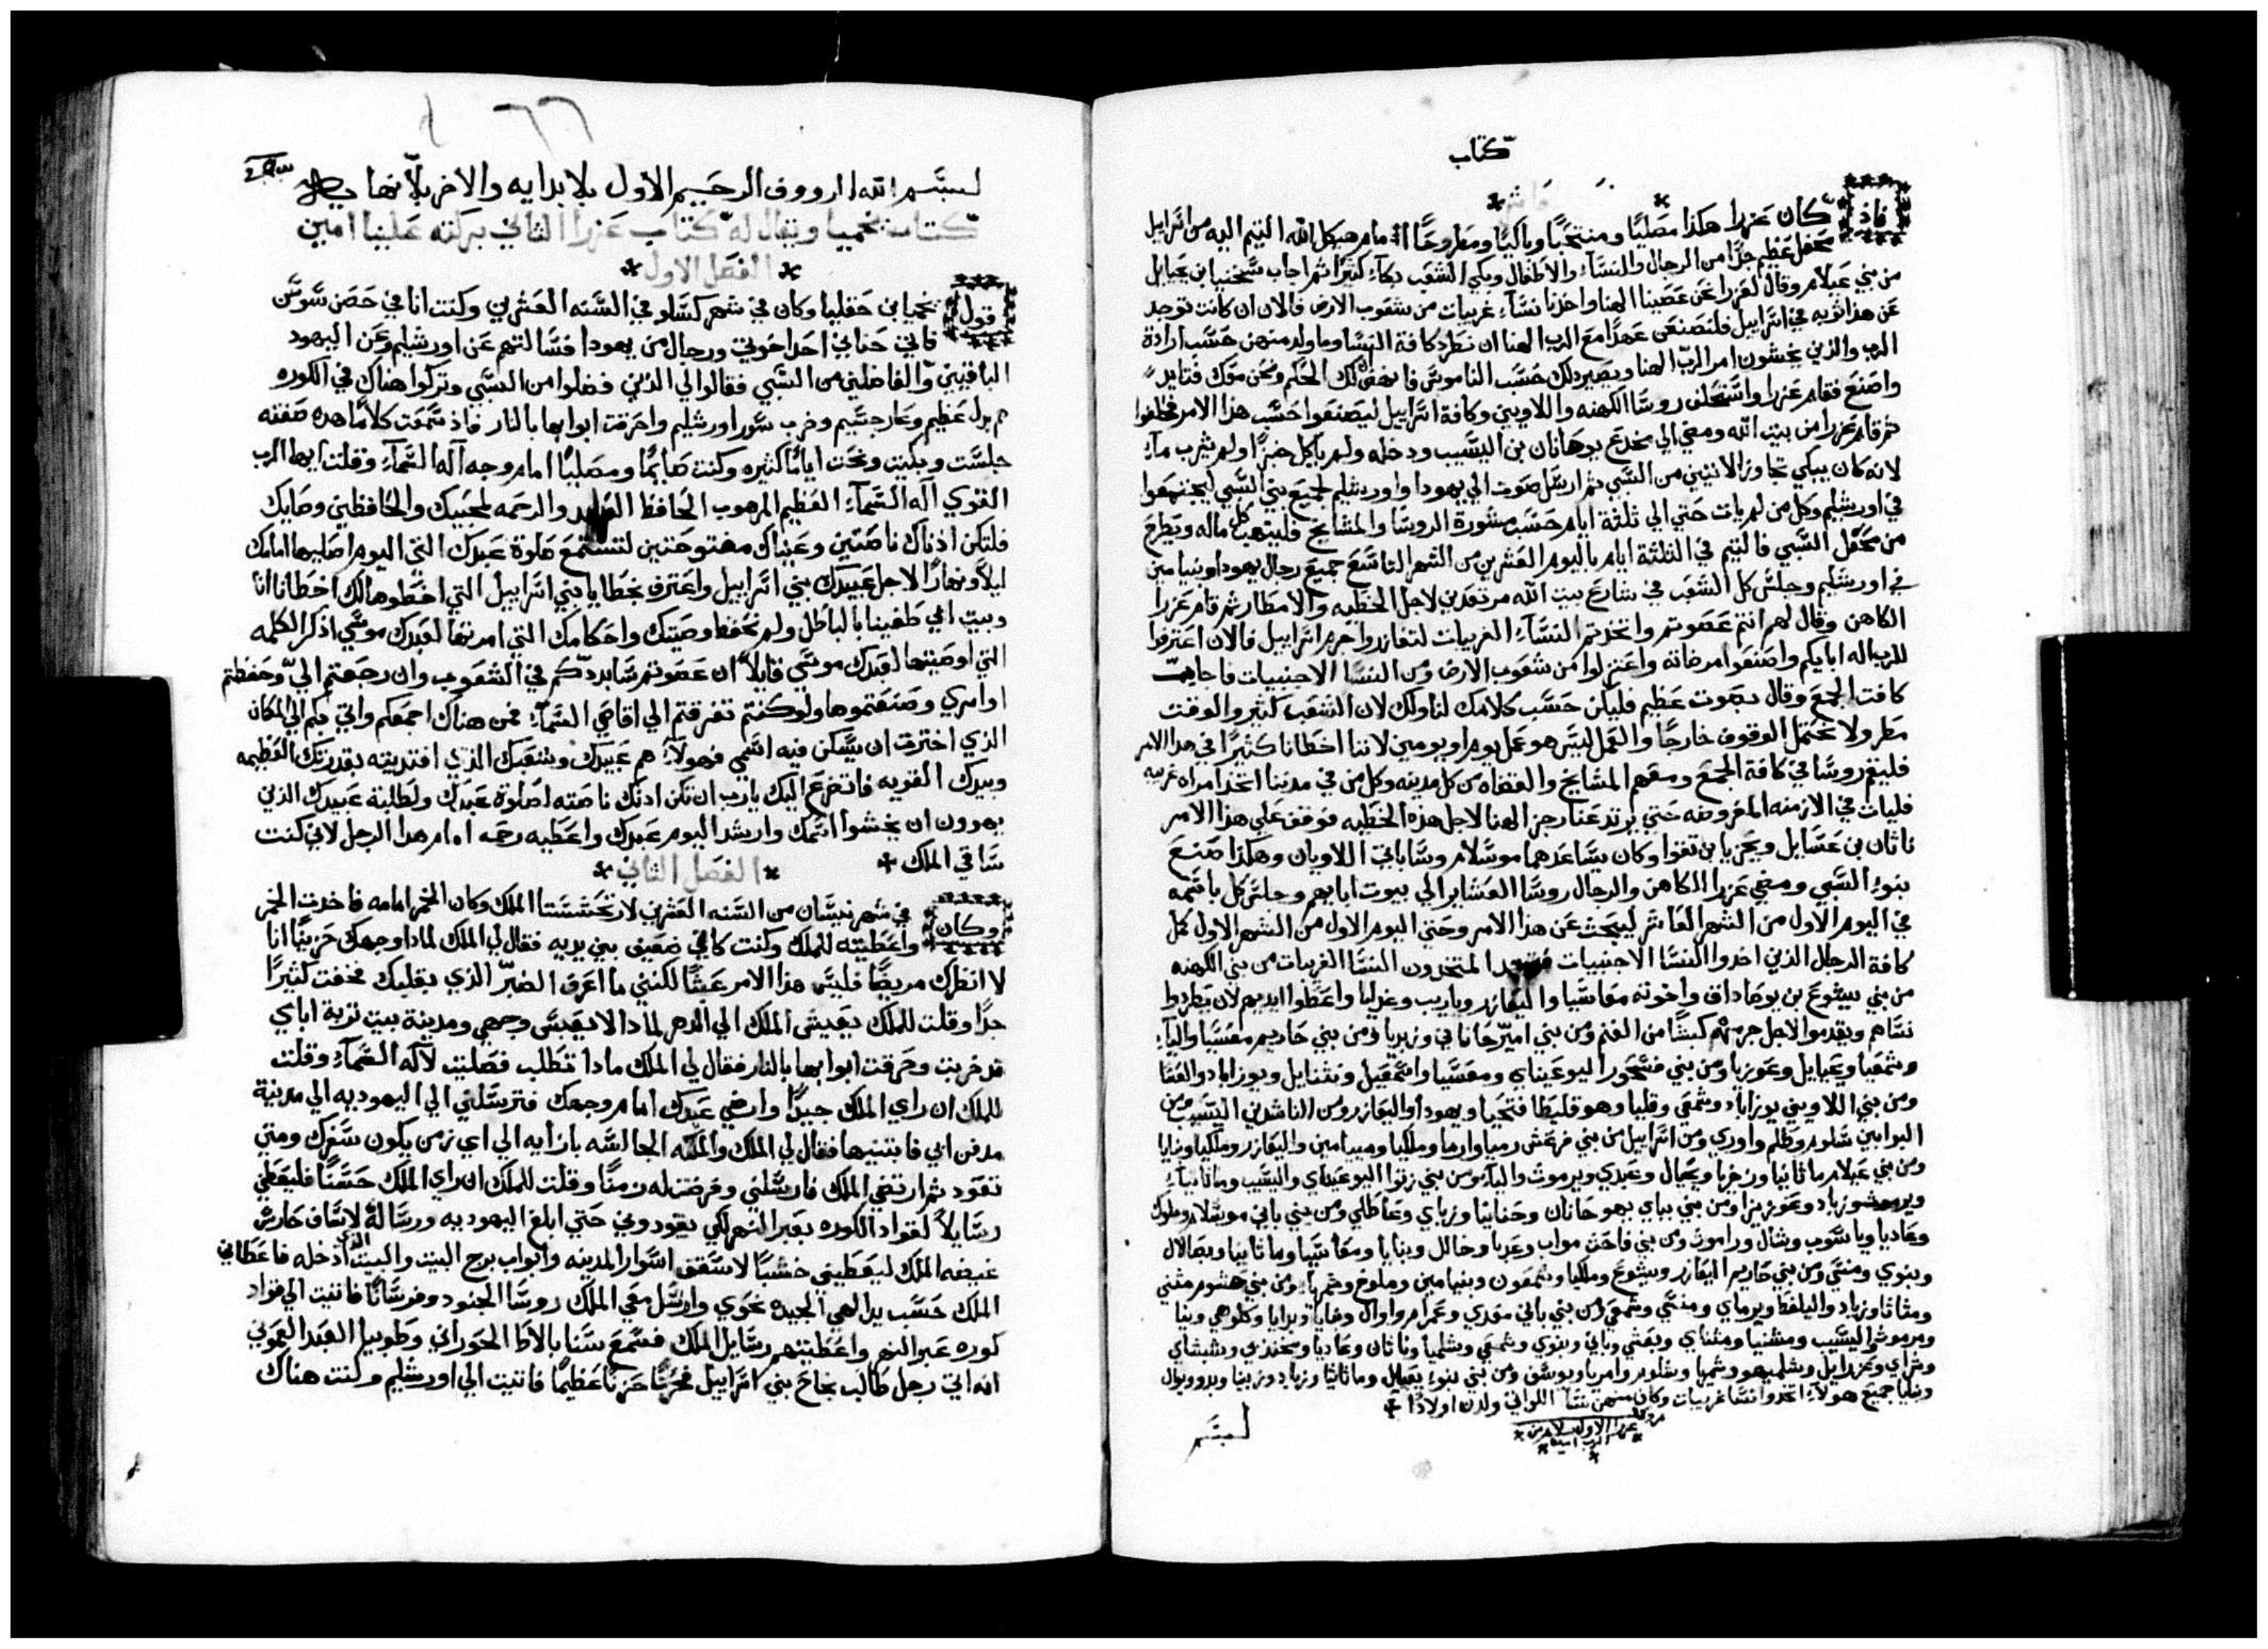 كتاب
فاذ كان عزرا هكذا مصليًا ومنتحبًا وباكيًا ومطروحًا امام هيكل الله التيم اليه من اسراييل
محفل عظيم جدًا من الرجال والنسآء والاطفال وبكي الشعب بكآء كثيرًا ثم اجاب شخنيا بن يحيايل
من بني عيلام وقال لعزرا نحن عصينا الهنا واخذنا نسآء غريبات من شعوب الارض فالان ان كانت توجد
عن هذا توبه في اسراييل فلنصنعن عهدًا مع الرب الهنا ان نطرد كافة النسا وما ولد منهن حسب ارادة
الرب والذين يخشون امر الرب الهنا ويصير ذلك حسب الناموس فانهض لك الحكم ونحن معك فتايد
واصنع فقام عزرا واستحلف روسا الكهنه واللاويين وكافة اسراييل ليصنعوا حسب هذا الامر فحلفوا
ثم قام عزرا من بيت الله ومضي الي مخدع يوحانان بن اليشيب ودخله ولم ياكل خبزًا ولم يشرب مآء
لانه كان يبكي تجاوز الاتيين من السبي ثم ارسل صوت الي يهودا واورشليم لجميع بني السبي ليجتمعوا
في اورشليم وكل من لم يات حتي الي ثلثة ايام حسب مشورة الروسا والمشايخ فلينهب كل ماله ويطرح
من محفل السبي فالتيم في الثلثة ايام باليوم العشرين من الشهر التاسع جميع رجال يهودا وبنيامين
في اورشليم وجلس كل الشعب في شارع بيت الله مرتعدين لاجل الخطيه والامطار ثم قام عزرا
الكاهن وقال لهم انتم عصوتم واتخذتم النسآء الغريبات لتغازروا جرم اسراييل فالان اعترفوا
للرب اله ابايكم واصنعوا مرضاته واعتزلوا من شعوب الارض ومن النسا الاجنبيات فاجابت
كافت الجمع وقال بصوت عظيم فليكن حسب كلامك لنا ولكن لان الشعب كثير والوقت
مطر ولا نحتمل الوقوف خارجًا والعمل ليس هو عمل يوم او يومين لاننا اخطانا كثيرًا في هذا الامر
فليقم روسا في كافة الجمع ومعهم المشايخ والقضاه من كل مدينه وكل من في مدننا اتخذ امراه غريبه
فليات في الازمنه المفروضه حتي يرتد عنا رجز الهنا لاجل هذه الخطيه فوقف علي هذا الامر
ناثان بن عسايل ويحزيا بن تقوا وكان يساعدهما موسلام وساباتي اللاويان وهكذا صنع
بنوا السبي ومضي عزرا الكاهن والرجال روسا العشاير الي بيوت ابايهم وجلس كل باسمه
في اليوم الاول من الشهر العاشر ليبحث عن هذا الامر وحتي اليوم الاول من الشهر الاول كمل
كافة الرجال الذين اخدوا النسا الاجنبيات فوجد المتخذون النسا الغريبات من بني الكهنه
من بني يشوع بن يوصاداق واخوته معاسيا واليعازر وياريب وغدليا واعطوا ايديهم لان يطردوا
نساهم ويقدموا لاجل جرمهم كبشًا من الغنم ومن بني امير حاناني وزبديا ومن بني حاريم معسيا واليا
وشمعيا ويحيايل وعوزيا ومن بني فشحور اليوعيناي ومعسيا واسمعيل ونثنايل ويوزاباد والعسا
ومن بني اللاويين يوزاباد وشمعي وقليا وهو قليطا فتحيا ويهودا واليعازر ومن الناشدين اليشيب ومن
البوابين شلوم وطلم واوري ومن اسراييل من بني فرعش رميا وازيا وملكيا وميامين واليعازر وملكيا وبنايا
ومن بني عيلام ماتانيا وزخريا ويحيال وعبدي ويرموث واليا ومن بني زتوا اليوعيناي واليشيب وماتانيا
ويرموث وزباد وعزيزا ومن بني بباي يهوحانان وحنانيا وزباي وعاطلي ومن بني باني موشلام وملوك
وعاديا وياسوب وشال وراموث ومن بني فاحث مواب وعدنا وخالل وبنايا ومعاسيا وماتانيا وبصالال
وبنوي ومنسي ومن بني حاريم اليعازر ويشوع وملكيا وشمعون وبنيامين وملوخ وشمريا ومن بني هشوم متني
ومتاتا وزباد واليلفط ويرماي ومنسي وشمعي ومن بني باني معدي وعمرام واوال وبنايا وبدايا وكلوهي وبنيا
ومرموث واليشيب ومتنيا ومتناي ويعشي وباني وبنوي وشمعي وشلميا وناثان وعاديا ومخندي وشيشاي
وشراي وعزرايل وشلميهو وشمريا وشلوم وامريا ويوسف ومن بني بنوا يعيال وماتاثيا وزباد وزبينا ويدو ويوال
وبنايا جميع هولاء اتخدوا نسا غريبات وكان منهن نسا اللواتي ولدن اولادًا
عزرا الاول
لبسم
لبسم الله الرووف الرحيم الاول بلا بدايه والاخر بلا نهايه
كتاب نحميا ويقال له كتاب عزرا الثاني بركته علينا امين
الفصل الاول
قول نحميا بن حقليا وكان في شهر كسلو في السنه العشرين وكنت انا في حصن سوسن
فاتي حناني احد اخوتي ورجال من يهودا فسالتهم عن اورشليم وعن اليهود
الباقيين والفاضلين من السبي فقالوا لي الذين فضلوا من السبي وتركوا هناك في الكوره
هم بذل عظيم وعار جسيم وخرب سور اورشليم واحرقت ابوابها بالنار فاذ سمعت كلامًا هده صفته
جلست وبكيت ونحت ايامًا كثيره وكنت صايمًا ومصليًا امام وجه اله السمآء وقلت ايها الرب
القوي اله السمآء العظيم المرهوب الحافظ العهد والرحمه لمحبيك والحافظين وصاياك
فلتكن اذناك ناصتين وعيناك مفتوحتين لتستمع صلوة عبدك التي اليوم اصليها امامك
ليلًا ونهارًا لاجل عبيدك بني اسراييل واعترف بخطايا بني اسراييل التي اخطوها لك اخطانا انا
وبيت ابي طغينا بالباطل ولم نحفظ وصيتك واحكامك التي امرتها لعبدك موسي اذكر الكلمه
التي اوصيتها لعبدك موسي قايلًا ان عصوتم سابددكم في الشعوب وان رجعتم الي وحفظتم
اوامري وصنعتموها ولو كنتم تفرقتم الي اقاصي السمآء فمن هناك اجمعكم واتي بكم الي المكان
الذي اخترت ان يسكن فيه اسمي فهولاء هم عبيدك وشعبك الذي افتديته بقدرتك العظيمه
وبيدك القويه فاتضرع اليك يارب ان تكن ادنك ناصته لصلوة عبدك ولطلبة عبيدك الذين
يهوون ان يخشوا اسمك وارشد اليوم عبدك واعطيه رحمه امام هدا الرجل لاني كنت
ساقي الملك
الفصل الثاني
وكان في شهر نيسان من السنه العشرين لارتحششتا الملك وكان الخمر امامه فاخدت الخمر
واعطيته للملك وكنت كاني ضعيف بين يديه فقال لي الملك لمادا وجهك حزينًا انا
لا انظرك مريضًا فليس هذا الامر عبثًا لكنني ما اعرف الضر الذي بقلبك فخفت كثيرًا
جدًا وقلت للملك يعيش الملك الي الدهر لمادا لا يعبس وجهي ومدينة بيت تربة اباي
قد خربت وحرقت ابوابها بالنار فقال لي الملك مادا تطلب فصليت لاله السمآء وقلت
للملك ان راي الملك جيدًا وارضي عبدك امام وجهك فترسلني الي اليهوديه الي مدينة
مدفن ابي فابتنيها فقال لي الملك والملكه الجالسه بازايه الي اي زمن يكون سفرك ومتي
تعود ثم ارتضي الملك فارسلني وفرضت له زمنًا وقلت للملك ان راي الملك حسنًا فليعطي
رسايلًا لقواد الكوره بعبر النهر لكي يقودوني حتي ابلغ اليهوديه ورسالة لاساف حارس
غيضه الملك ليعطيني خشبًا لاسقف اسوار المدينه وابواب برج البيت والبيت الذي ادخله فاعطاني
الملك حسب يد الهي الجيده نحوي وارسل معي الملك روسا الجنود وفرسانًا فاتيت الي قواد
كوره عبر النهر واعطيتهم رسايل الملك فسمع سنابالاط الحوراني وطوبيا العبد العموني
انه اتي رجل طالب نجاح بني اسراييل فحزنا حزنًا عظيمًا فاتيت الي اورشليم وكنت هناك